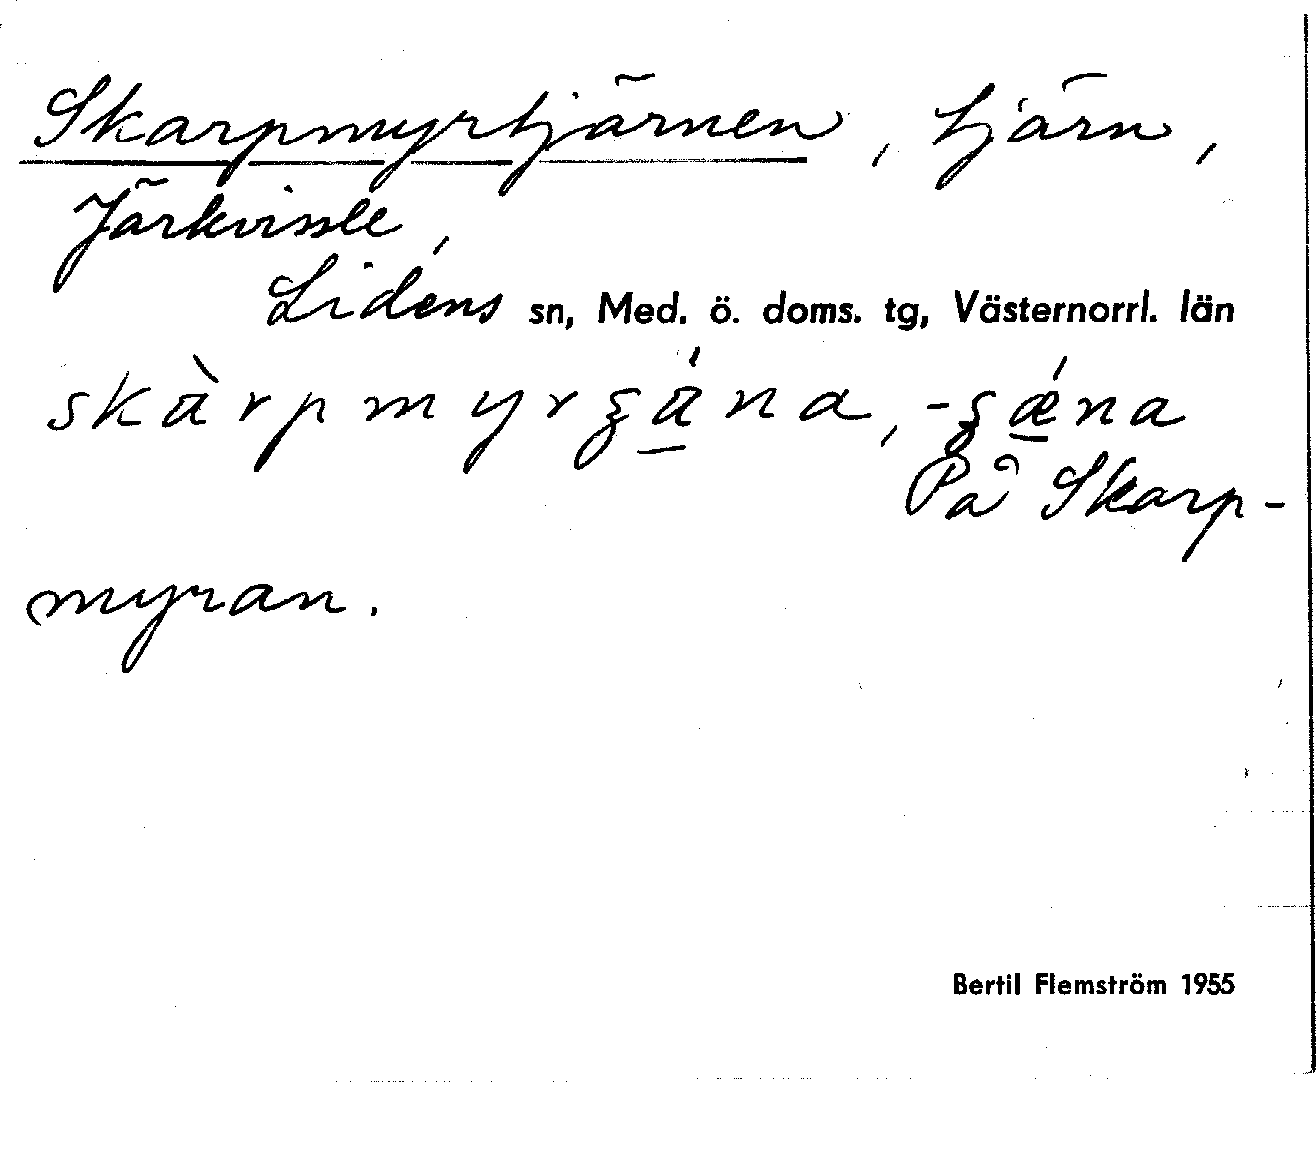 Skarpmyrtjärnen, tjärn,
Järkvissle,
Lidens sn, Med. ö. doms. tg, Västernorrl. län
skàrpmyrʒá̱na, -ʒǽ̱na
På Skarp-
myran.
Bertil Flemström 1955